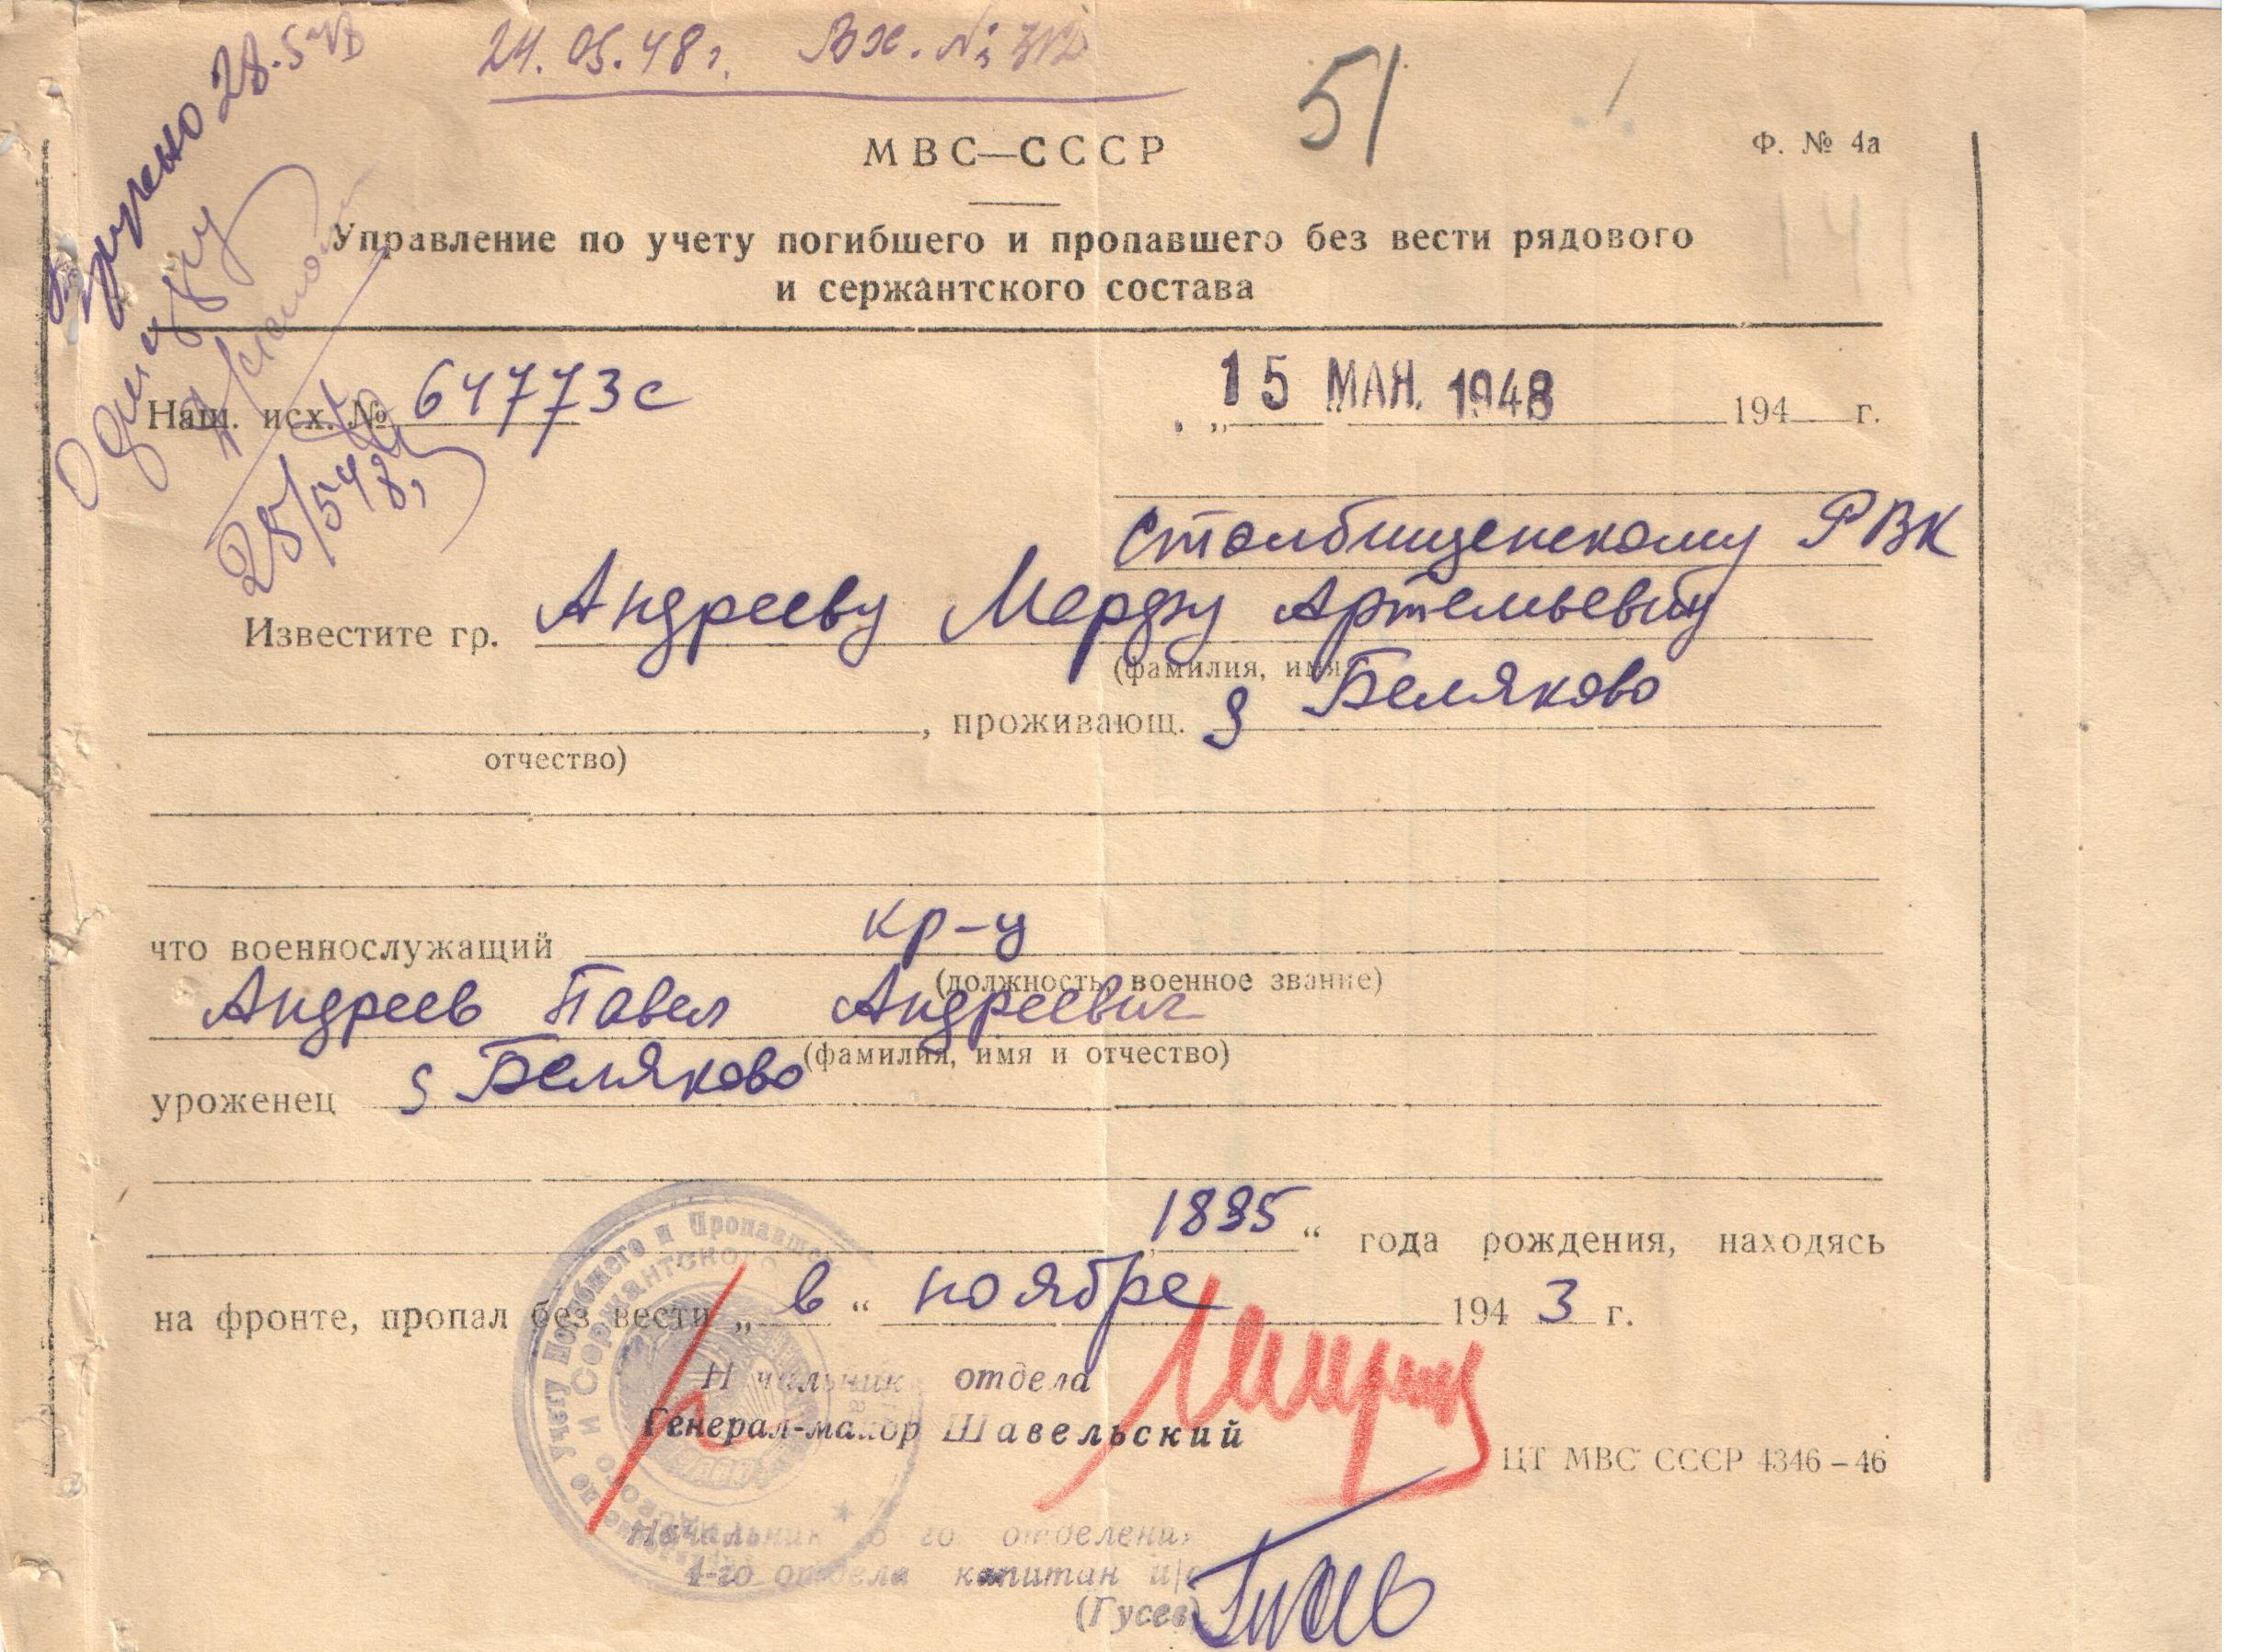 24.05.48 г. Вх. №
28.5
51
МВС—СССР
Ф. № 4а
141
Управление по учету погибшего и пропавшего без вести рядового
и сержантского состава
Наш. исх. № 64773с
15 МАЯ. 1948 194 г.
28/5 48г
Столбищенскому РВК
Известите гр. Андрееву Артемьевну
(фамилия, имя,
, проживающ. д Беляково
отчество)
что военнослужащий кр-ц
(должность, военное звание)
Андреев Павел Андреевич
(фамилия, имя и отчество)
уроженец д Беляково
„1895“ года рождения, находясь
на фронте, пропал без вести „в“ ноябре 1943 г.
Начальник отдела
Генерал-майор Шавельский
ЦТ МВС СССР 4346–46
Начальник го отделения
1-го отдела капитан и/с
(Гусев)